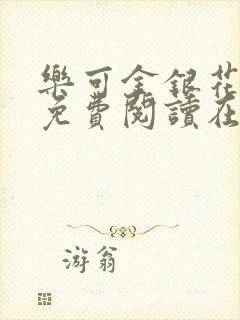 樂可金銀花
免費閱讀在
游翁